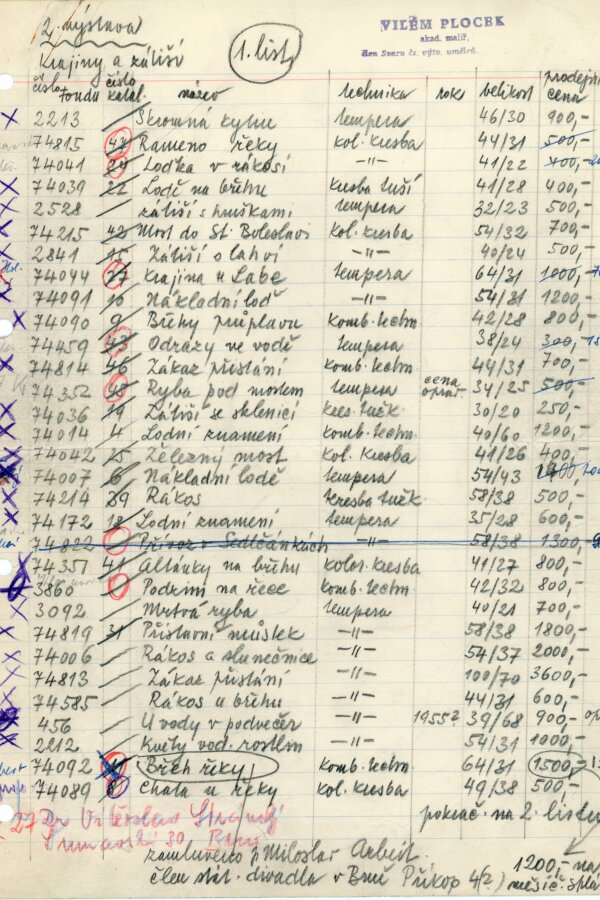 2. výstava
Krajiny a zátiší
1. list
VILÉM PLOCEK
akad. malíř.
člen Svazu čs. výtv. umělců.
číslo fondu číslo katal. název technika rok velikost prodejní cena
2213 Skromná kytice tempera 46/30 900,-
74815 Rameno řeky kol. kresba 44/31 500,-
74041 Loďka v rákosí -"- 41/22 400,-
74039 22 Lodě na břehu kresba tuší 41/28 400,-
2528 zátiší s hruškami tempera 32/23 500,-
74215 42 Most do St. Boleslavi kol. kresba 54/32 700,-
2841 15 Zátiší s lahví -"- 40/24 500,-
74044 27 Krajina u Labe tempera 64/31 1000,-
74091 10 Nákladní lodě -"- 54/31 1200,-
74090 9 Břehy průplavu komb. techn. 42/28 800,-
74459 43 Odrazy ve vodě tempera 38/24 300,-
74814 46 Zákaz přistání komb. techn. 49/31 700,-
74352 Ryba pod mostem tempera cena oprav. 34/25 500,-
74036 19 Zátiší se sklenicí kres. tuš. 30/20 250,-
74014 4 Lodní znamení komb. techn. 40/60 1200,-
74042 25 Železný most kol. kresba 41/26 400,-
74007 6 Nákladní lodě tempera 54/43
74214 39 Rákos kresba tuš. 58/38 500,-
74172 18 Lodní znamení tempera 35/28 600,-
74822 Přívoz v Sedlčánkách -"- 58/38 1300,-
74351 41 Altánky na břehu kolor. kresba 41/27 800,-
3860 Podzim na řece komb. techn. 42/32 800,-
3092 Mrtvá ryba tempera 40/21 700,-
74819 31 Přístavní můstek -"- 58/38 1800,-
74006 Rákos a slunečnice -"- 54/37 2000,-
74813 Zákaz přistání -"- 100/70 3600,-
74585 Rákos u břehu -"- 44/31 600,-
456 U vody v podvečer -"- 1955? 39/68 900,-
2212 Květy vod. rostlin -"- 54/31 1000,-
74092 Břeh řeky komb. techn. 64/31 1500,-
74089 8 Chata u řeky kol. kresba 49/38 500,-
pokrač. na 2. listu
27 Dr Vítězslav
30 Brno
zamluveno p. Miloslav Arbeit
1200,- na
člen stát. divadla v Brně Příkop 4(2) měsíč. splá